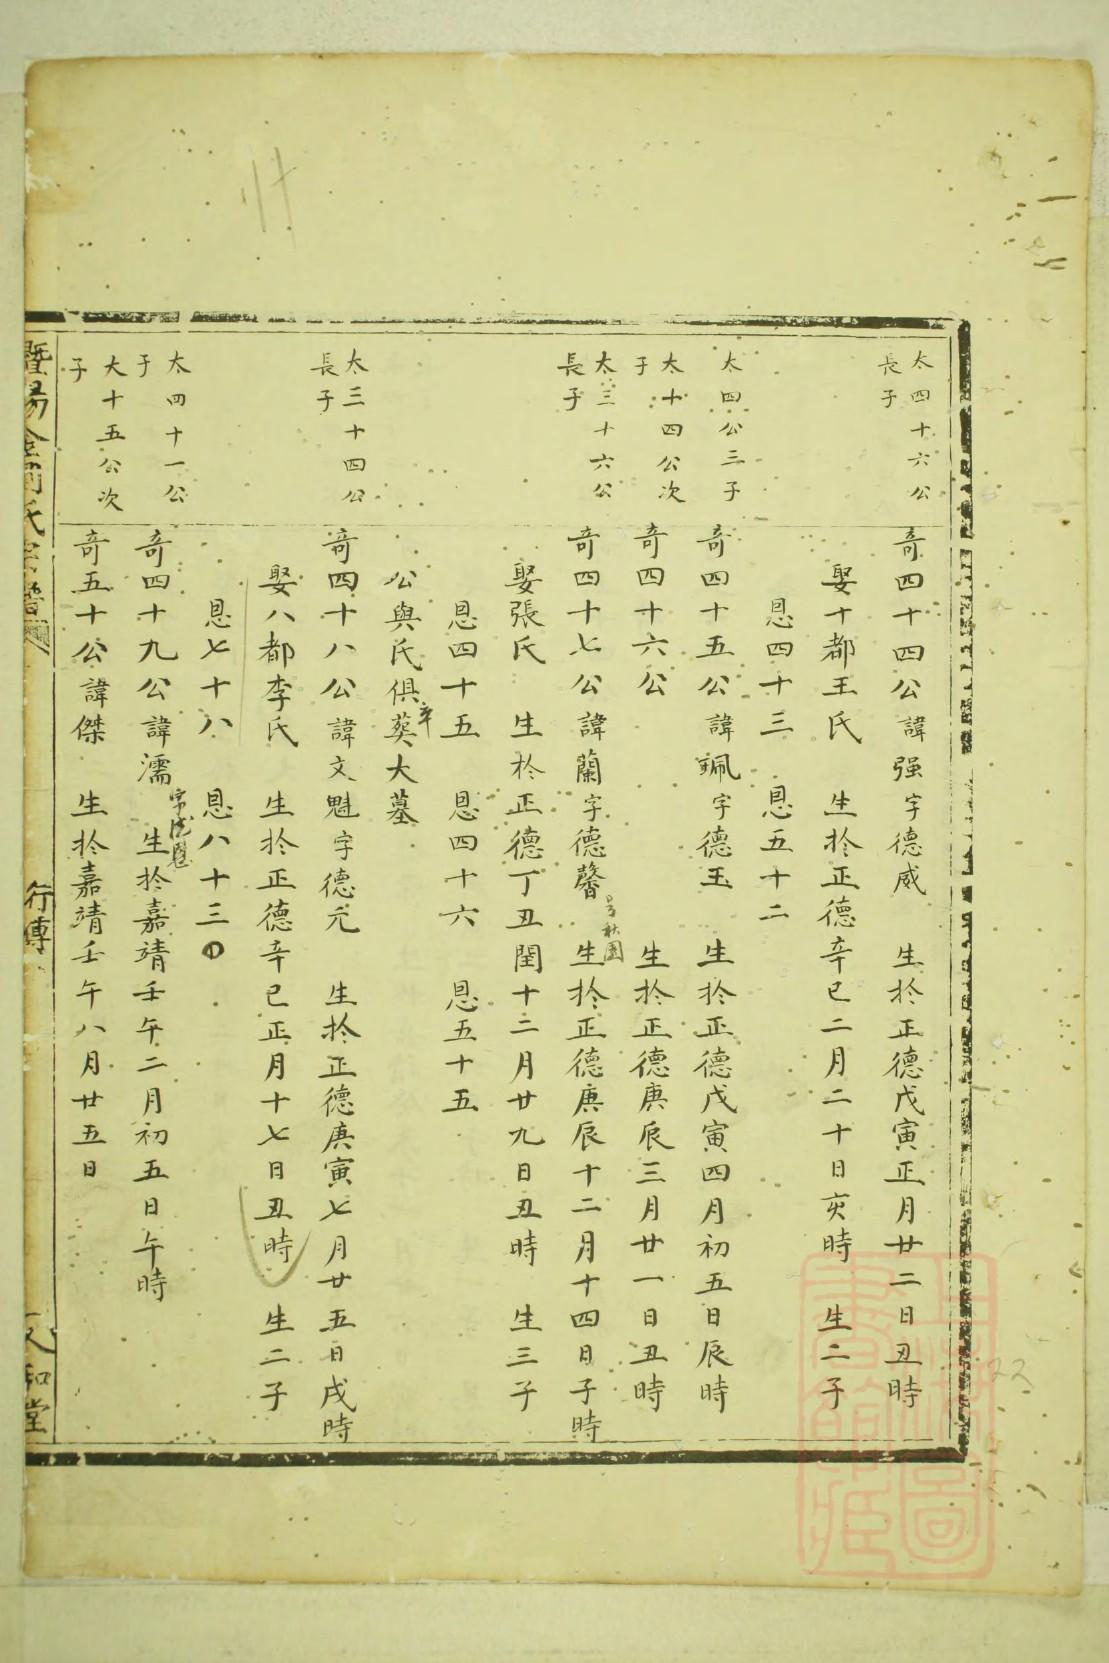 太四十六公
長子
奇四十四公諱强字德威 生扵正德戊寅正月廿二日丑時
娶十都王氏 生扵正德辛巳二月二十日亥時 生二子
恩四十三 恩五十二
太四公三子
奇四十五公諱珮字德玉 生扵正德戊寅四月初五日辰時
太十四公次
子
奇四十六公 生扵正德庚辰三月廿一日丑時
太三十六公
長子
奇四十七公諱蘭字德馨 生扵正德庚辰十二月十四日子時
号秋園
娶張氏 生扵正德丁丑閏十二月廿九日丑時 生三子
恩四十五 恩四十六 恩五十五
公與氏俱葬大墓
太三十四公
長子
奇四十八公諱文魁字德元 生扵正德庚寅七月廿五日戌時
娶八都李氏 生扵正德辛巳正月十七日丑時 生二子
恩七十八 恩八十三
太四十一公
子
奇四十九公諱濡 生扵嘉靖壬午二月初五日午時
大十五公次
子
奇五十公諱傑 生扵嘉靖壬午八月廿五日
行傳
和堂
22